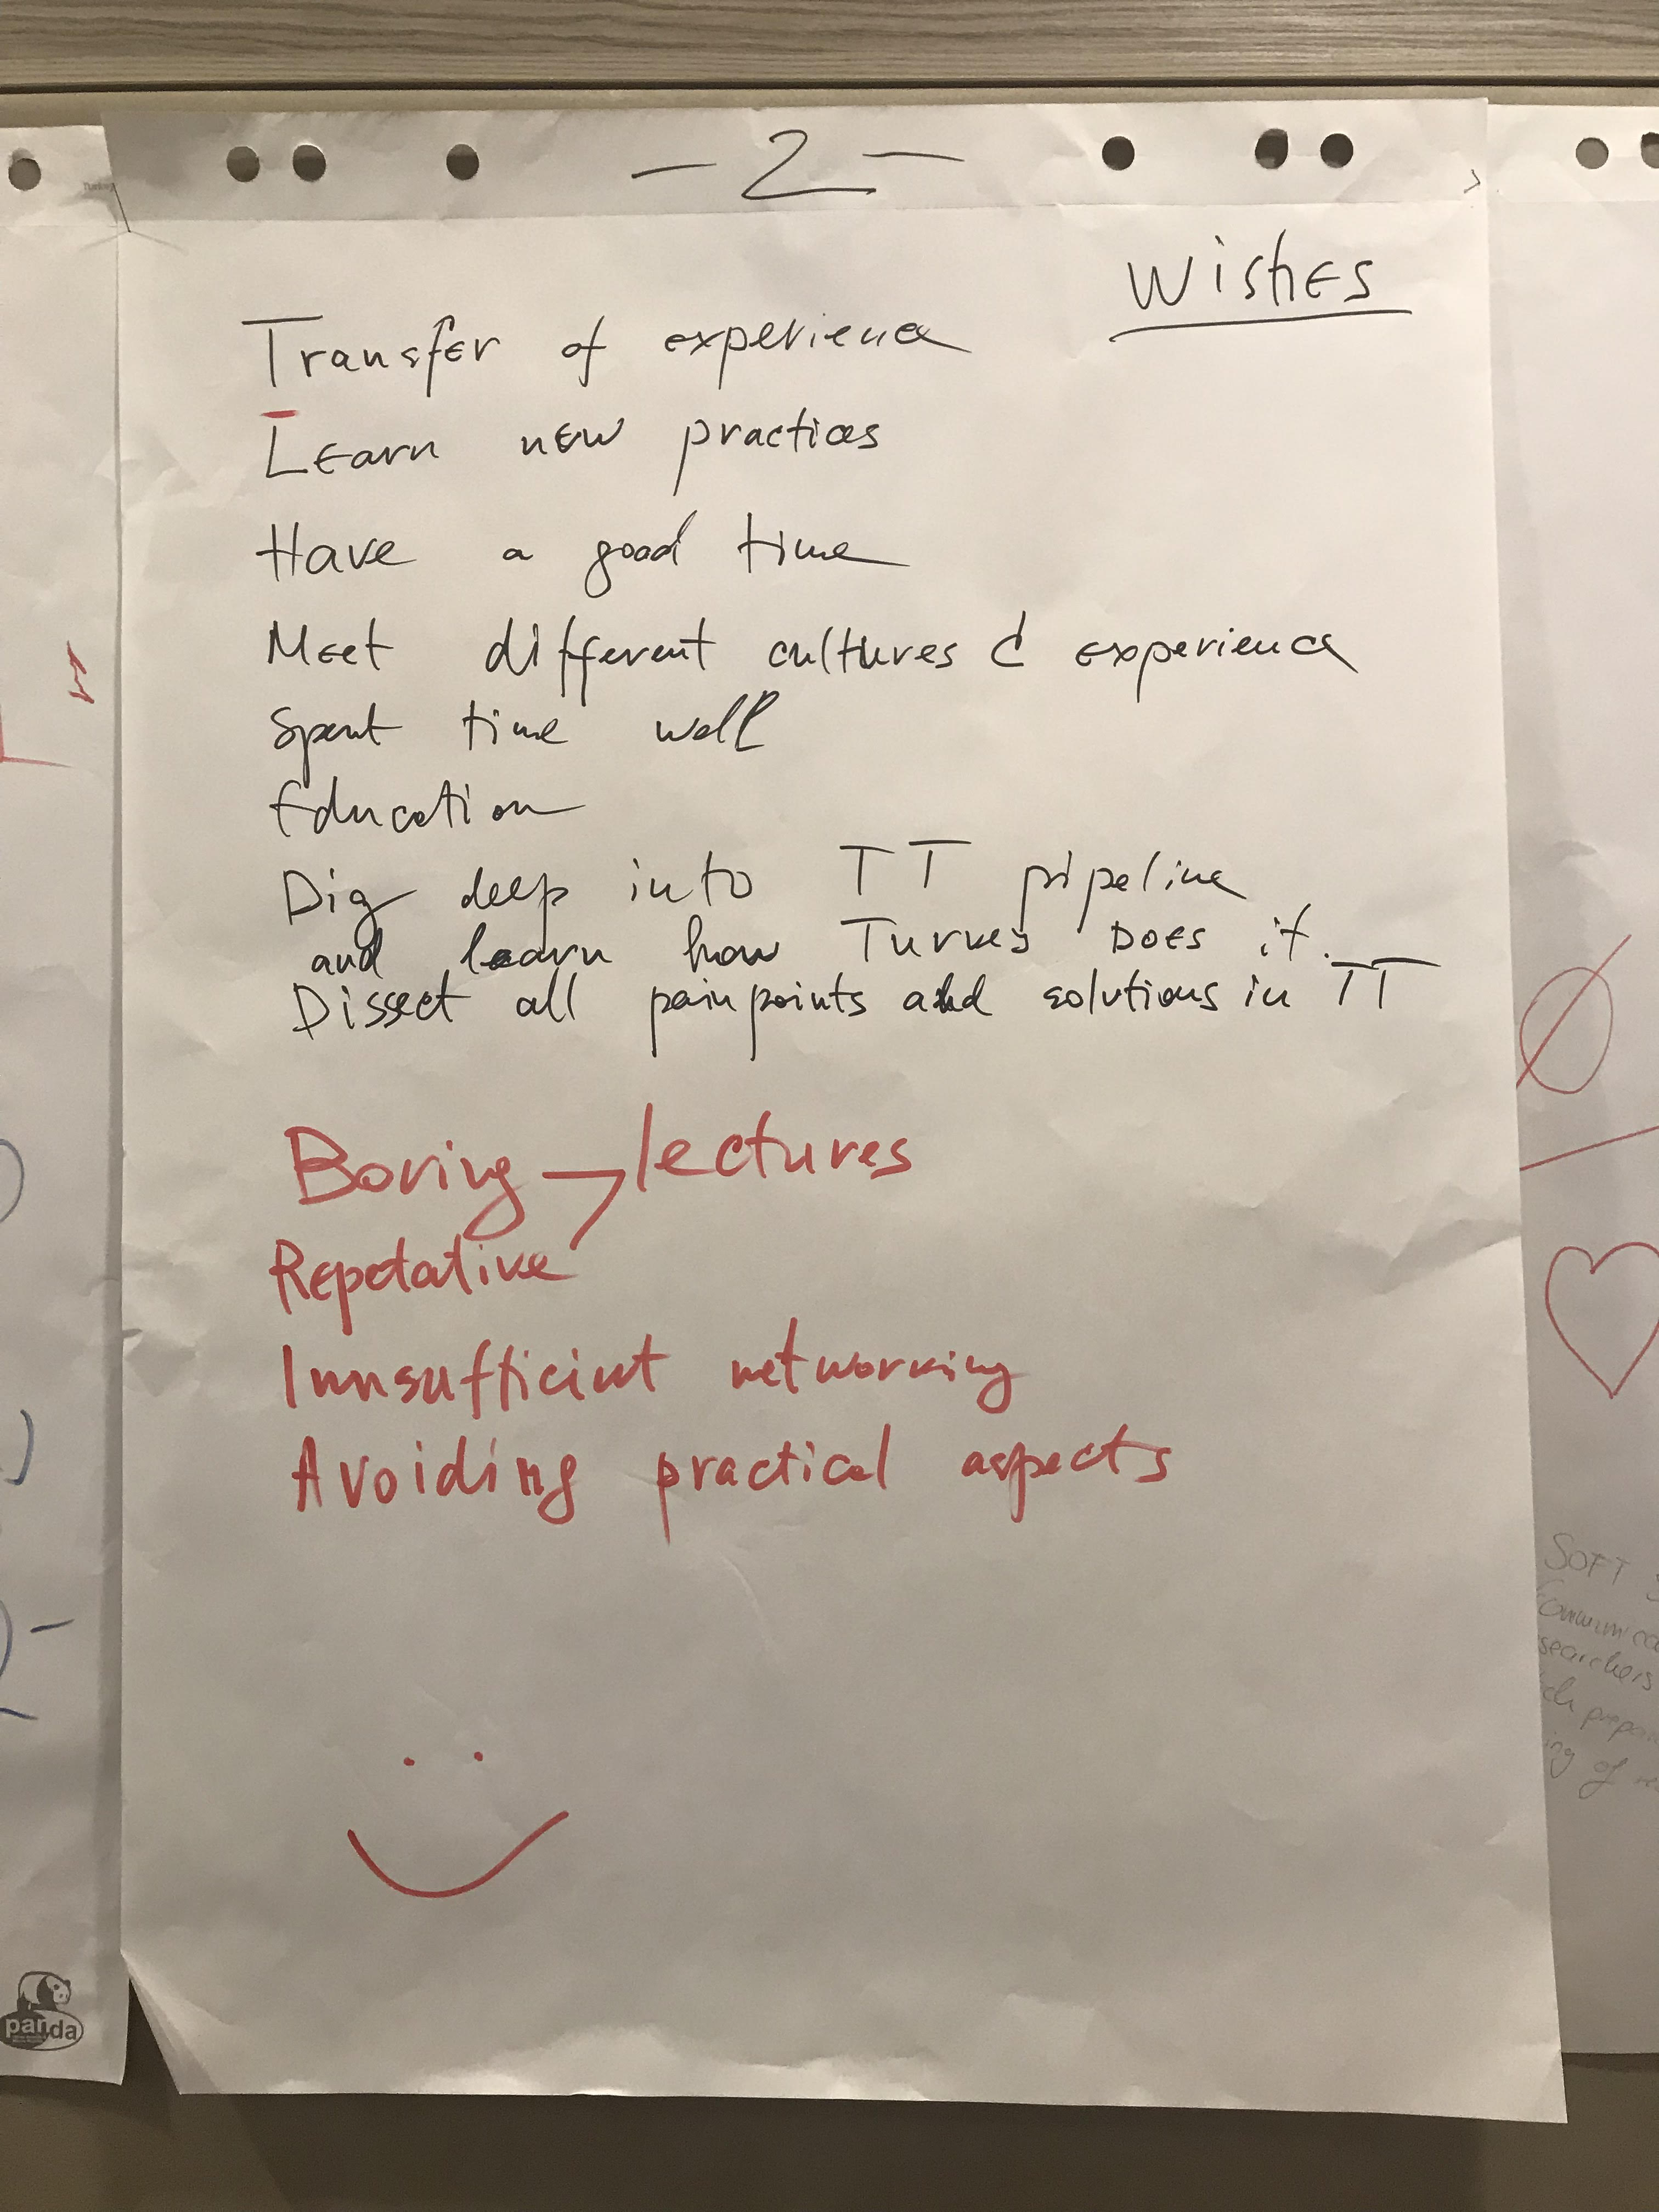 - 2 -
WisHEs
Transfer of experience
Learn new practices
Have a good time
Meet different cultures & experience
Spent time well
Education
Dig deep into TT pipeline
and learn how Turkey Does it.
Dissect all painpoints and solutions in TT
Boring lectures
Repetative
Innsufficient networking
Avoiding practical aspects
panda
SOFT
searchers
ing of